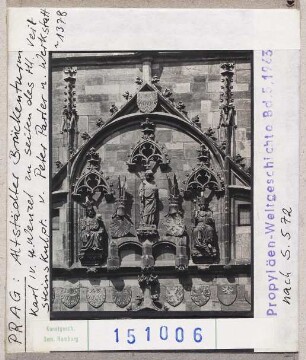 PRAG: Altstädter Brückenturm
Karl IV. u. Wenzel zu seiten des Hl. Veit
Steinskulpt. v. Peter Parler u. Werkstatt
~1378
Propyläen-Weltgeschichte Bd.5, 1963
nach S. 572
Kunstgesch.
Sem. Hamburg
151006